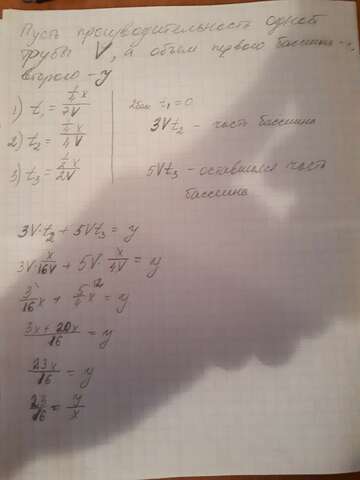 Пусть производительность одной
трубы V, а объем первого бассейна - x,
второго - y
1) t₁ = (1/4 x)/(2V)
2) t₂ = (1/4 x)/(4V)
3) t₃ = (1/2 x)/(2V)
2бас t₁ = 0
3Vt₂ - часть бассейна
5Vt₃ - оставшаяся часть
бассейна
3V·t₂ + 5Vt₃ = y
3V·x/16V + 5V·x/4V = y
3/16 x + 5/4 x = y
(3x + 20x)/16 = y
23x/16 = y
23/16 = y/x